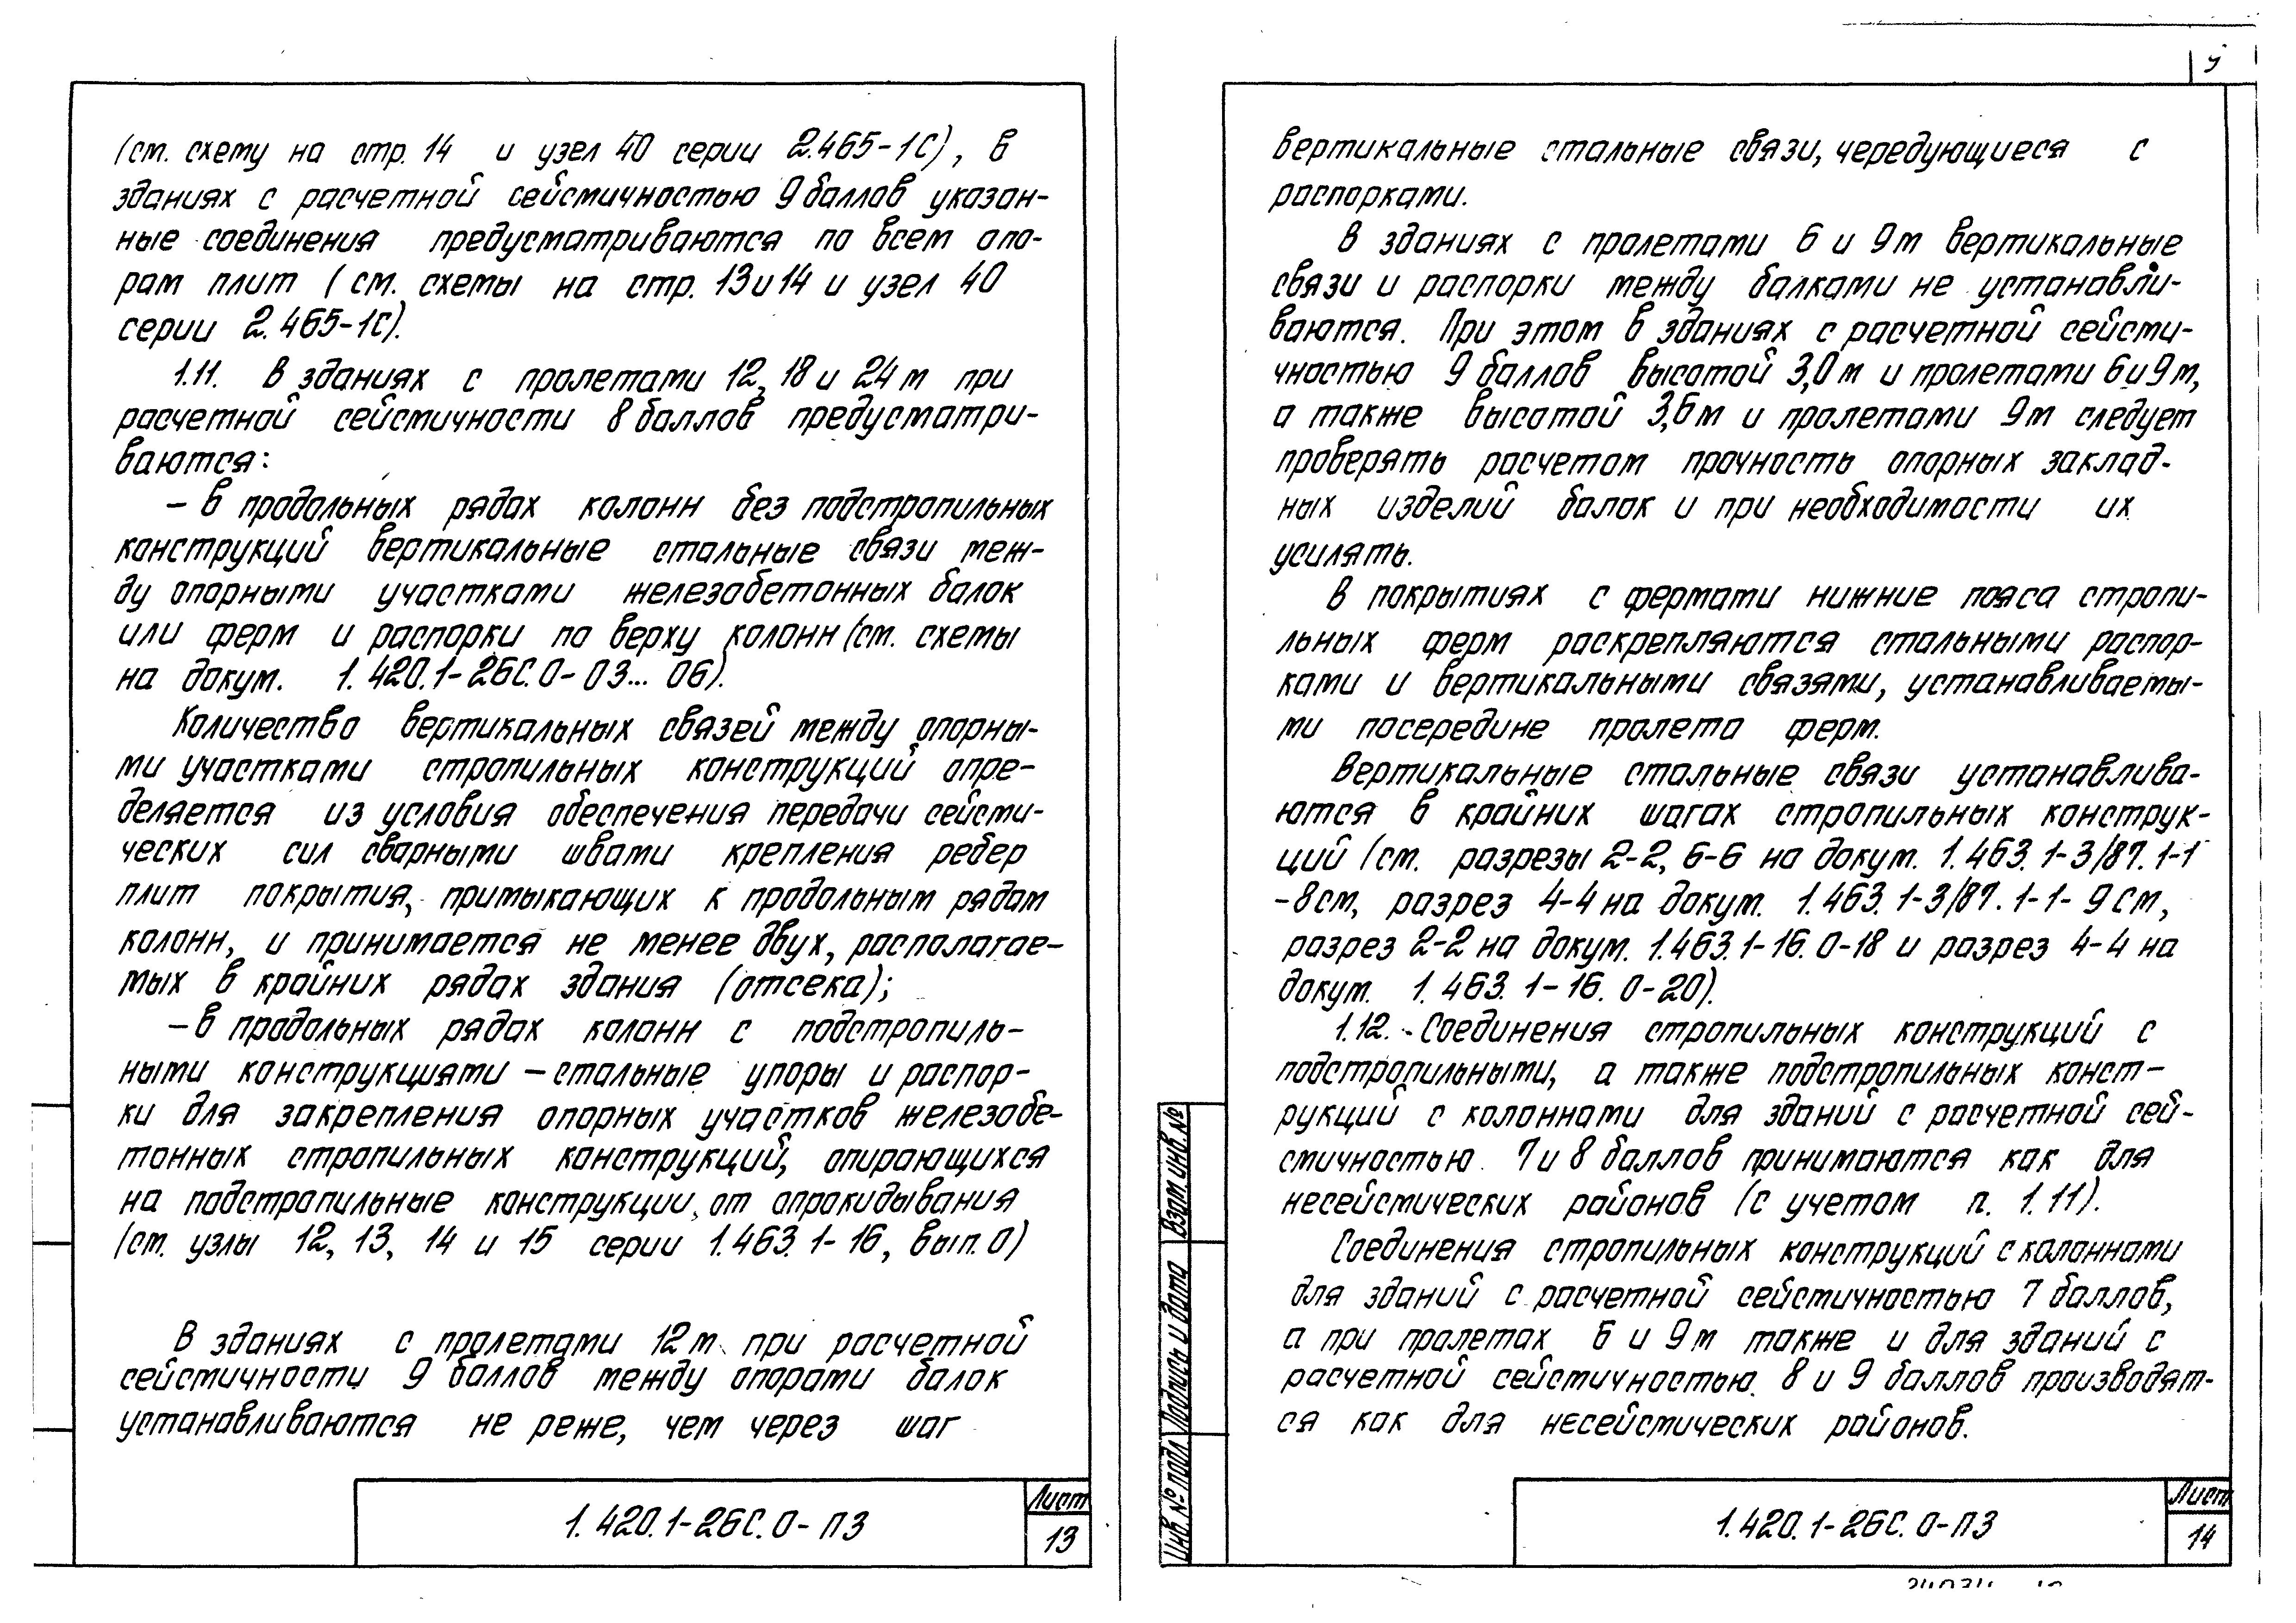 (см. схему на стр. 14 и узел 40 серии 2.465-1С), в
зданиях с расчетной сейсмичностью 9 баллов указан-
ные соединения предусматриваются по всем опо-
рам плит (см. схемы на стр. 13 и 14 и узел 40
серии 2.465-1С).
1.11. В зданиях с пролетами 12, 18 и 24 м при
расчетной сейсмичности 8 баллов предусматри-
ваются:
- в продольных рядах колонн без подстропильных
конструкций вертикальные стальные связи меж-
ду опорными участками железобетонных балок
или ферм и распорки по верху колонн (см. схемы
на докум. 1.420.1-26С.0-03... 06).
Количество вертикальных связей между опорны-
ми участками стропильных конструкций опре-
деляется из условия обеспечения передачи сейсми-
ческих сил сварными швами крепления ребер
плит покрытия, примыкающих к продольным рядам
колонн, и принимается не менее двух, располагае-
мых в крайних рядах здания (отсека);
- в продольных рядах колонн с подстропиль-
ными конструкциями - стальные упоры и распор-
ки для закрепления опорных участков железобе-
тонных стропильных конструкций, опирающихся
на подстропильные конструкции, от опрокидывания
(см. узлы 12, 13, 14 и 15 серии 1.463.1-16, вып. 0)
В зданиях с пролетами 12 м при расчетной
сейсмичности 9 баллов между опорами балок
устанавливаются не реже, чем через шаг
1.420.1-26С.0-ПЗ
Лист
13
9
вертикальные стальные связи, чередующиеся с
распорками.
В зданиях с пролетами 6 и 9 м вертикальные
связи и распорки между балками не устанавли-
ваются. При этом в зданиях с расчетной сейсми-
чностью 9 баллов высотой 3,0 м и пролетами 6 и 9 м,
а также высотой 3,6 м и пролетами 9 м следует
проверять расчетом прочность опорных заклад-
ных изделий балок и при необходимости их
усилять.
В покрытиях с фермами нижние пояса стропи-
льных ферм раскрепляются стальными распор-
ками и вертикальными связями, устанавливаемы-
ми посередине пролета ферм.
Вертикальные стальные связи устанавлива-
ются в крайних шагах стропильных конструк-
ций (см. разрезы 2-2, 6-6 на докум. 1.463.1-3/87.1-1
-8см, разрез 4-4 на докум. 1.463.1-3/87.1-1-9см,
разрез 2-2 на докум. 1.463.1-16.0-18 и разрез 4-4 на
докум. 1.463.1-16.0-20).
1.12. Соединения стропильных конструкций с
подстропильными, а также подстропильных конст-
рукций с колоннами для зданий с расчетной сей-
смичностью 7 и 8 баллов принимаются как для
несейсмических районов (с учетом п. 1.11).
Соединения стропильных конструкций с колоннами
для зданий с расчетной сейсмичностью 7 баллов,
а при пролетах 6 и 9 м также и для зданий с
расчетной сейсмичностью 8 и 9 баллов производят-
ся как для несейсмических районов.
Взам. инв. №
Подпись и дата
Инв. № подл
1.420.1-26С.0-ПЗ
Лист
14